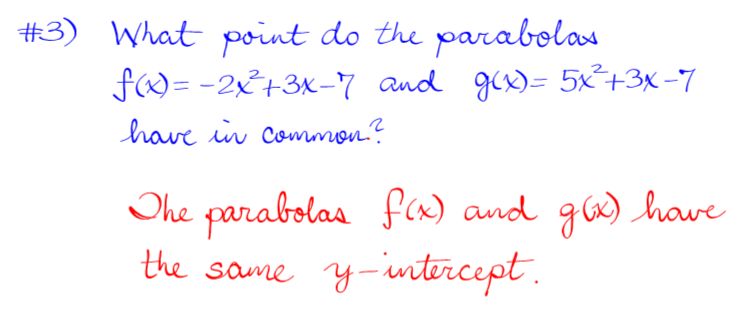 #3) What point do the parabolas
f(x) = -2x²+3x-7 and g(x) = 5x²+3x-7
have in common?
The parabolas f(x) and g(x) have
the same y-intercept.